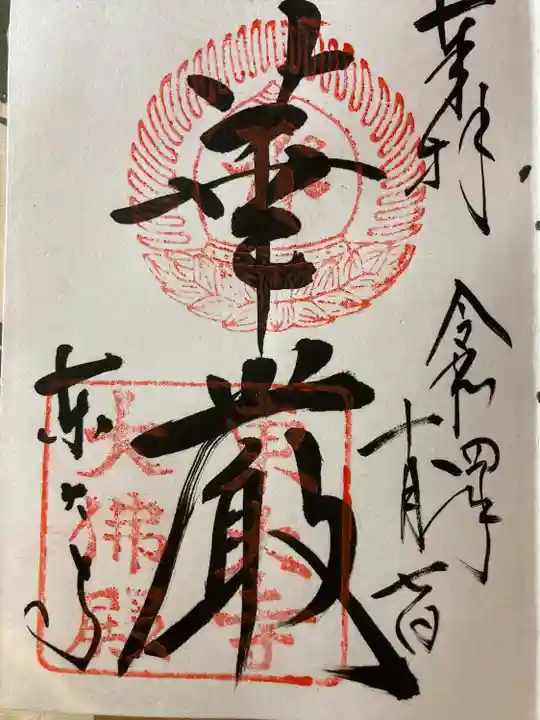 奉拝
令和四年
十月七日
華厳
東大寺
東大寺
大佛殿